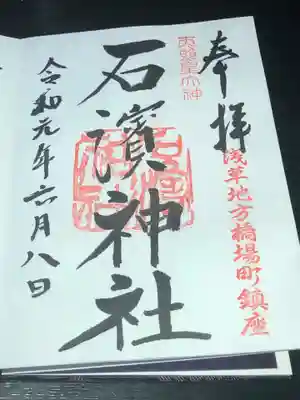 奉拝
浅草地方橋場町鎮座
天照皇大神
石濱神社
令和元年六月八日